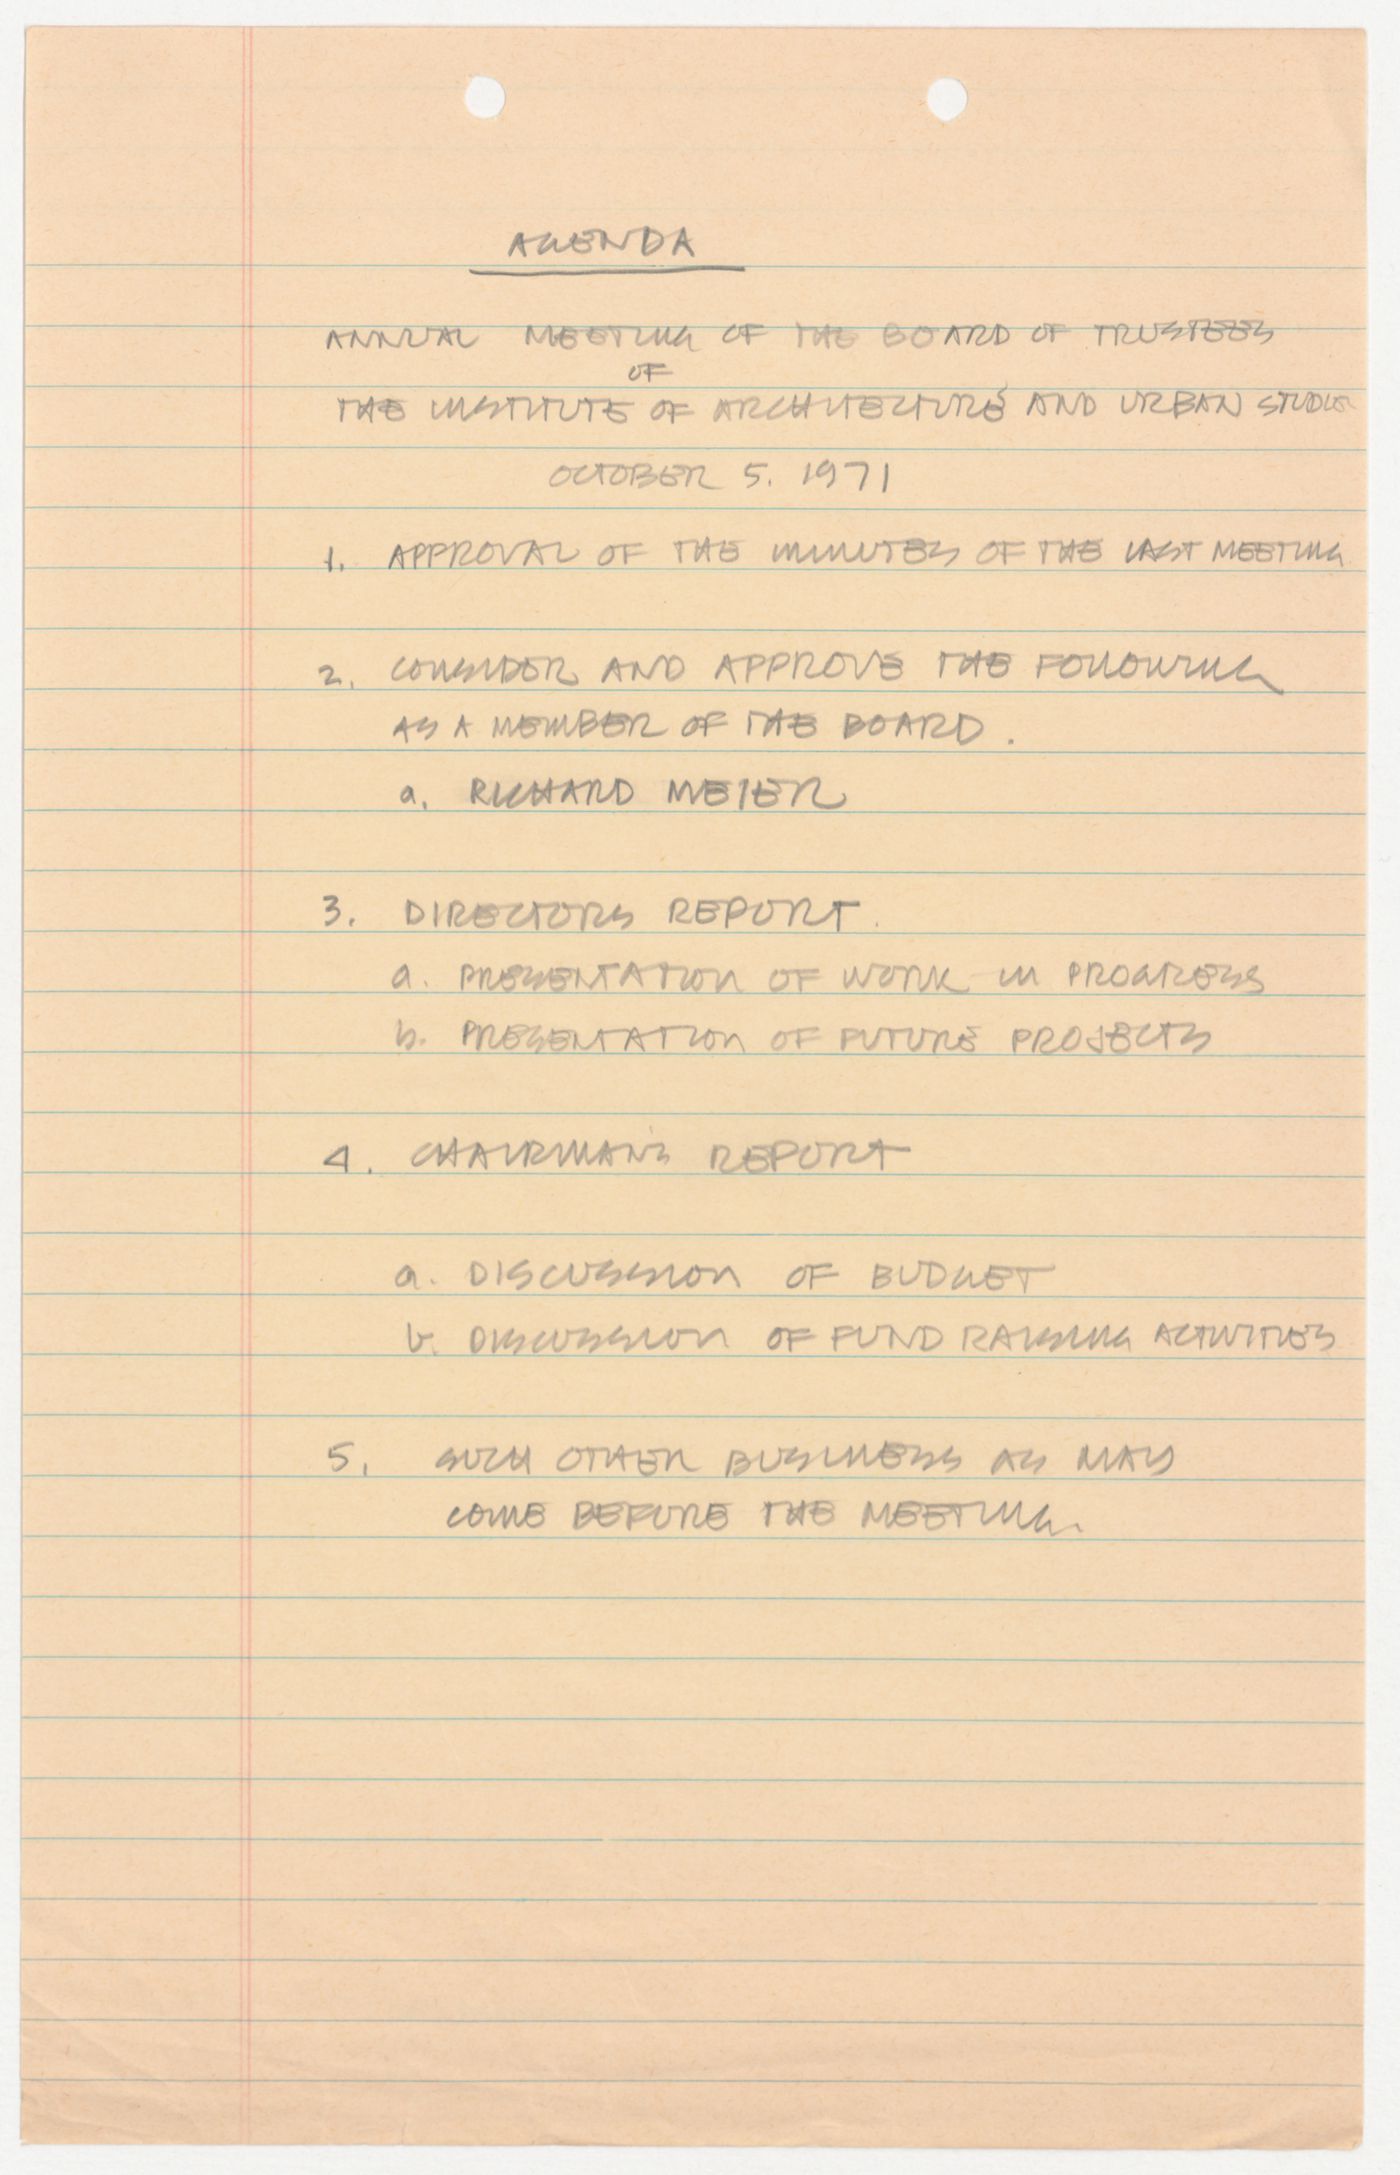 AGENDA
ANNUAL MEETING OF THE BOARD OF TRUSTEES
OF
THE INSTITUTE OF ARCHITECTURE AND URBAN STUDIES
OCTOBER 5. 1971
1. APPROVAL OF THE MINUTES OF THE LAST MEETING
2. CONSIDER AND APPROVE THE FOLLOWING
AS A MEMBER OF THE BOARD.
a. RICHARD MEIER
3. DIRECTORS REPORT.
a. PRESENTATION OF WORK IN PROGRESS
b. PRESENTATION OF FUTURE PROJECTS
4. CHAIRMAN'S REPORT
a. DISCUSSION OF BUDGET
b. DISCUSSION OF FUND RAISING ACTIVITIES
5. SUCH OTHER BUSINESS AS MAY
COME BEFORE THE MEETING.